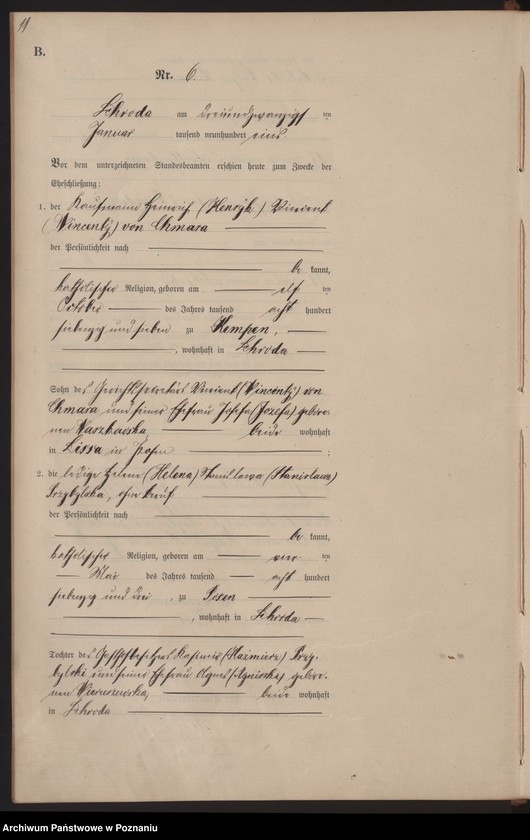 11
B.
Nr. 6.
Schroda am dreiundzwanzigsten
Januar tausend neunhundert eins
Vor dem unterzeichneten Standesbeamten erschien heute zum Zwecke der
Eheschließung:
1. der Kaufmann Heinrich (Henryk) Vincent
(Wincenty) von Chmara
der Persönlichkeit nach
be kannt,
katholischer Religion, geboren am elf ten
October des Jahres tausend acht hundert
siebenzig und sieben zu Kempen,
, wohnhaft in Schroda
Sohn des Gerichtssekretärs Vincent (Wincenty) von
Chmara und seiner Ehefrau Josefa (Jozefa) gebore-
nen Waszkowska beide wohnhaft
in Lissa in Posen ;
2. die ledige Helene (Helena) Stanislawa (Stanisława)
Przybylska, ohne Beruf
der Persönlichkeit nach
be kannt,
katholischer Religion, geboren am vier ten
Mai des Jahres tausend acht hundert
siebenzig und drei, zu Posen
, wohnhaft in Schroda
Tochter des Gasthofbesitzers Kasimir (Kazimierz) Przy-
bylski und seiner Ehefrau Agnes (Agnieszka) gebore-
nen Wieruszewska, beide wohnhaft
in Schroda
Archiwum Państwowe w Poznaniu